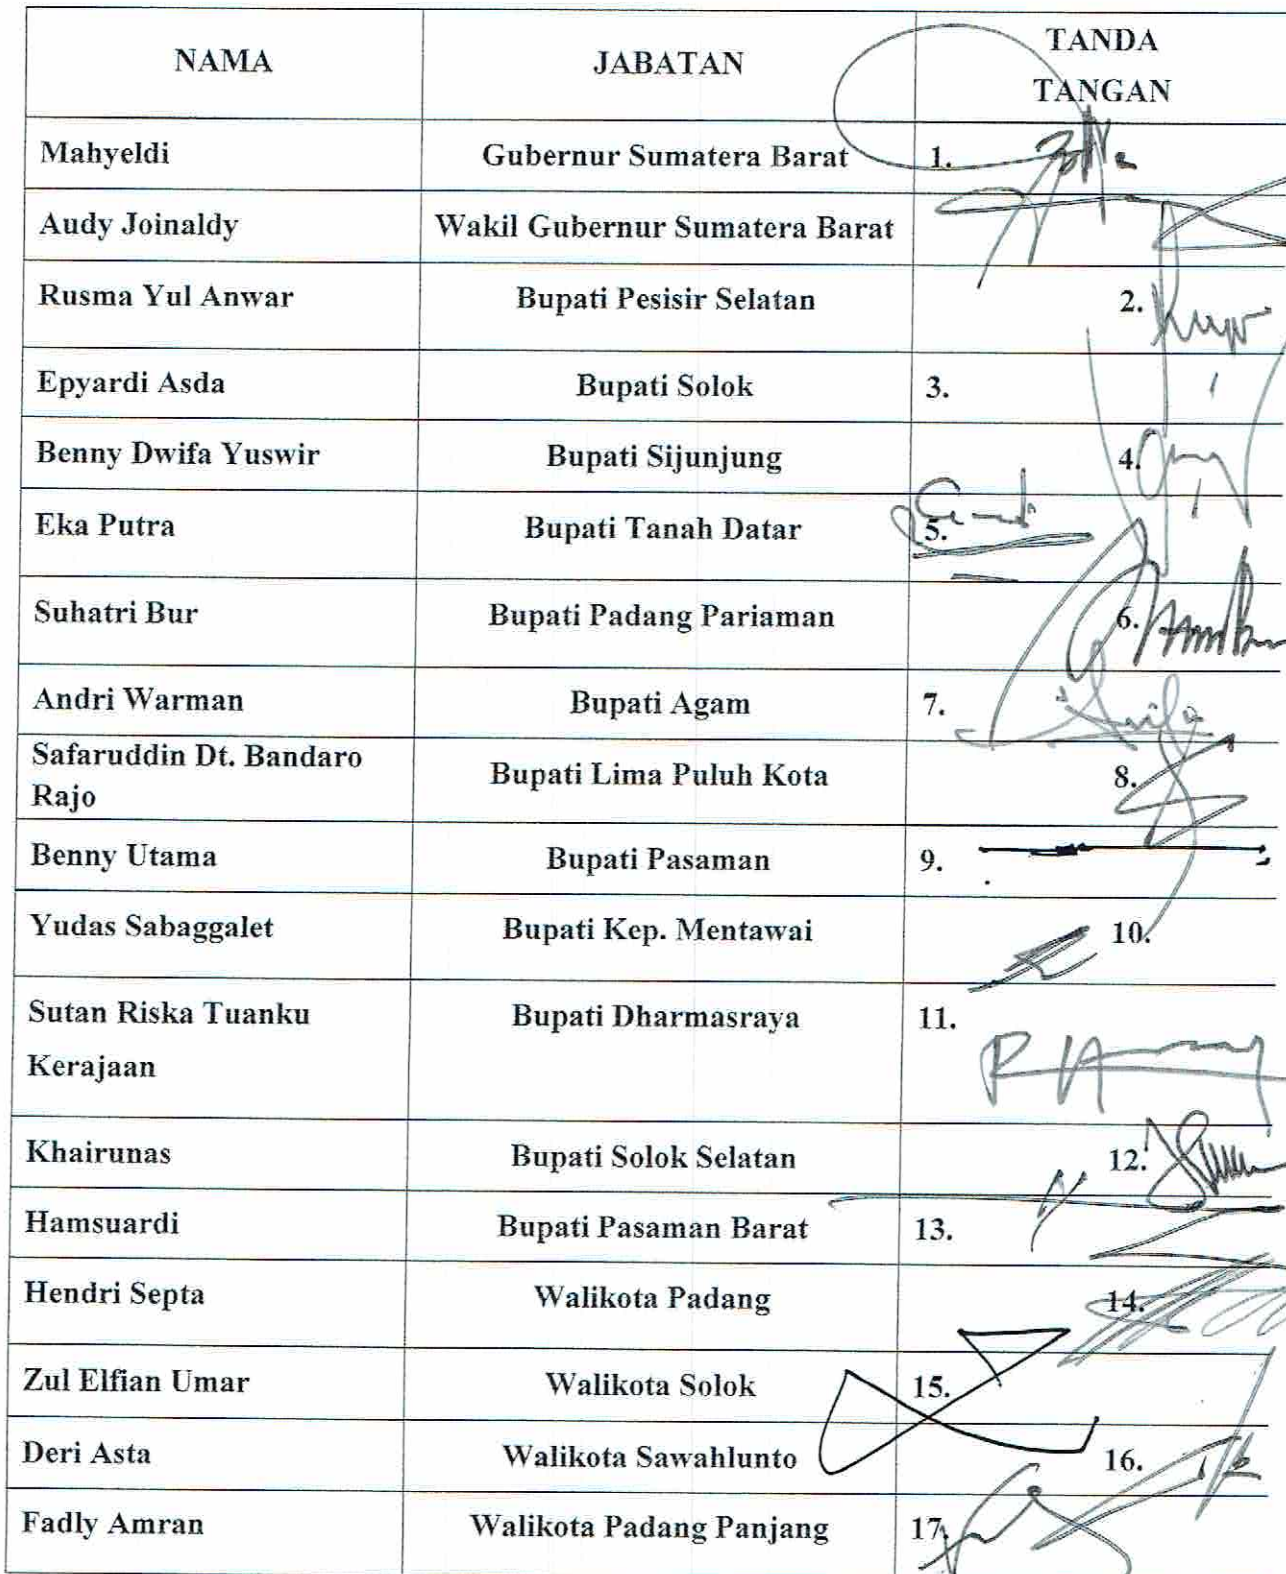 NAMA JABATAN TANDA
TANGAN
Mahyeldi Gubernur Sumatera Barat 1.
Audy Joinaldy Wakil Gubernur Sumatera Barat
Rusma Yul Anwar Bupati Pesisir Selatan 2.
Epyardi Asda Bupati Solok 3.
Benny Dwifa Yuswir Bupati Sijunjung 4.
Eka Putra Bupati Tanah Datar 5.
Suhatri Bur Bupati Padang Pariaman 6.
Andri Warman Bupati Agam 7.
Safaruddin Dt. Bandaro
Rajo Bupati Lima Puluh Kota 8.
Benny Utama Bupati Pasaman 9.
Yudas Sabaggalet Bupati Kep. Mentawai 10.
Sutan Riska Tuanku Bupati Dharmasraya 11.
Kerajaan
Khairunas Bupati Solok Selatan 12.
Hamsuardi Bupati Pasaman Barat 13.
Hendri Septa Walikota Padang 14.
Zul Elfian Umar Walikota Solok 15.
Deri Asta Walikota Sawahlunto 16.
Fadly Amran Walikota Padang Panjang 17.